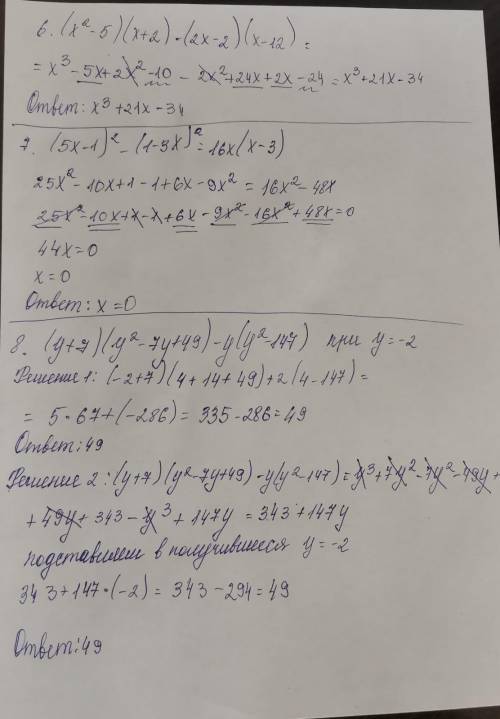 6. (x²-5)(x+2)-(2x-2)(x-12)=
= x³-5x+2x²-10 - 2x²+24x+2x-24 = x³+21x-34
Ответ: x³+21x-34
7. (5x-1)²-(1-3x)²=16x(x-3)
25x²-10x+1-1+6x-9x²=16x²-48x
25x²-10x+1-1+6x-9x²-16x²+48x=0
44x=0
x=0
Ответ: x=0
8. (y+7)(y²-7y+49)-y(y²-147) при y=-2
Решение 1: (-2+7)(4+14+49)+2(4-147)=
= 5·67+(-286)=335-286=49
Ответ: 49
Решение 2: (y+7)(y²-7y+49)-y(y²-147)=y³+7y²-7y²-49y+
+49y+343-y³+147y=343+147y
подставляем в получившиеся y=-2
343+147·(-2)=343-294=49
Ответ: 49